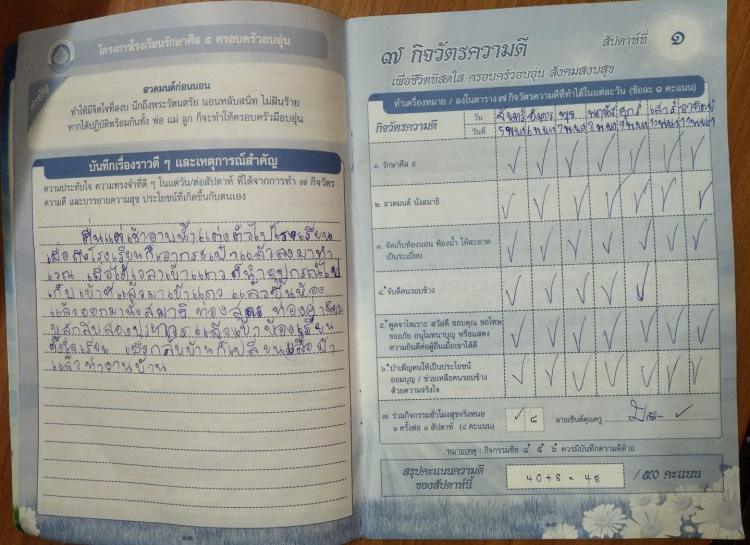 โครงการโรงเรียนรักษาศีล ๕ ครอบครัวอบอุ่น
สวดมนต์ก่อนนอน
ทำให้มีจิตใจที่สงบ นึกถึงพระรัตนตรัย นอนหลับสนิท ไม่ฝันร้าย
หากได้ปฏิบัติพร้อมกันทั้ง พ่อ แม่ ลูก ก็จะทำให้ครอบครัวมีอบอุ่น
บันทึกเรื่องราวดี ๆ และเหตุการณ์สำคัญ
ความประทับใจ ความทรงจำที่ดี ๆ ในแต่วัน/ต่อสัปดาห์ ที่ได้จากการทำ ๗ กิจวัตร
ความดี และบรรยายความสุข ประโยชน์ที่เกิดขึ้นกับตนเอง
ตื่นแต่เช้าอาบน้ำแต่งตัวไปโรงเรียน
เมื่อถึงโรงเรียนก็เอากระเป๋าแล้วลงมาทำ
เวณ เมื่อได้เวลาเข้าแถว
เก็บเข้าที่แล้วมาเข้าแถว แล้วขึ้นห้อง
แล้วออกมานั่งสมาธิ ท่องสูตร
แล้วเข้าห้องเรียน
ตั้งใจเรียน กลับบ้านก็เปลี่ยนเสื้อผ้า
แล้วทำงานบ้าน
๑๒
๗ กิจวัตรความดี
สัปดาห์ที่ ๑
เพื่อชีวิตที่สดใส ครอบครัวอบอุ่น สังคมสงบสุข
ทำเครื่องหมาย / ลงในตาราง ๗ กิจวัตรความดีที่ทำได้ในแต่ละวัน (ข้อละ ๑ คะแนน)
กิจวัตรความดี
วัน จันทร์ อังคาร พุธ พฤหัส ศุกร์ เสาร์ อาทิตย์
วันที่
๑. รักษาศีล ๕
๒. สวดมนต์ นั่งสมาธิ
๓. จัดเก็บห้องนอน ห้องน้ำ ให้สะอาด
เป็นระเบียบ
๔. จับดีคนรอบข้าง
๕. พูดจาไพเราะ สวัสดี ขอบคุณ ขอโทษ
ขออภัย อนุโมทนาบุญ หรือแสดง
ความยินดีต่อผู้อื่นเมื่อเขาได้ดี
๖. บำเพ็ญตนให้เป็นประโยชน์
ออมบุญ / ช่วยเหลือคนรอบข้าง
ด้วยความจริงใจ
๗. ร่วมกิจกรรมชั่วโมงสุขจริงหนอ
๑ ครั้งต่อ ๑ สัปดาห์ (๘ คะแนน)
๘
ลายเซ็นต์คุณครู
หมายเหตุ : กิจกรรมข้อ ๔ ๕ ๖ ควรมีบันทึกความดีด้วย
สรุปคะแนนความดี
ของสัปดาห์นี้
40+8 = 48
/ ๕๐ คะแนน
๑๓